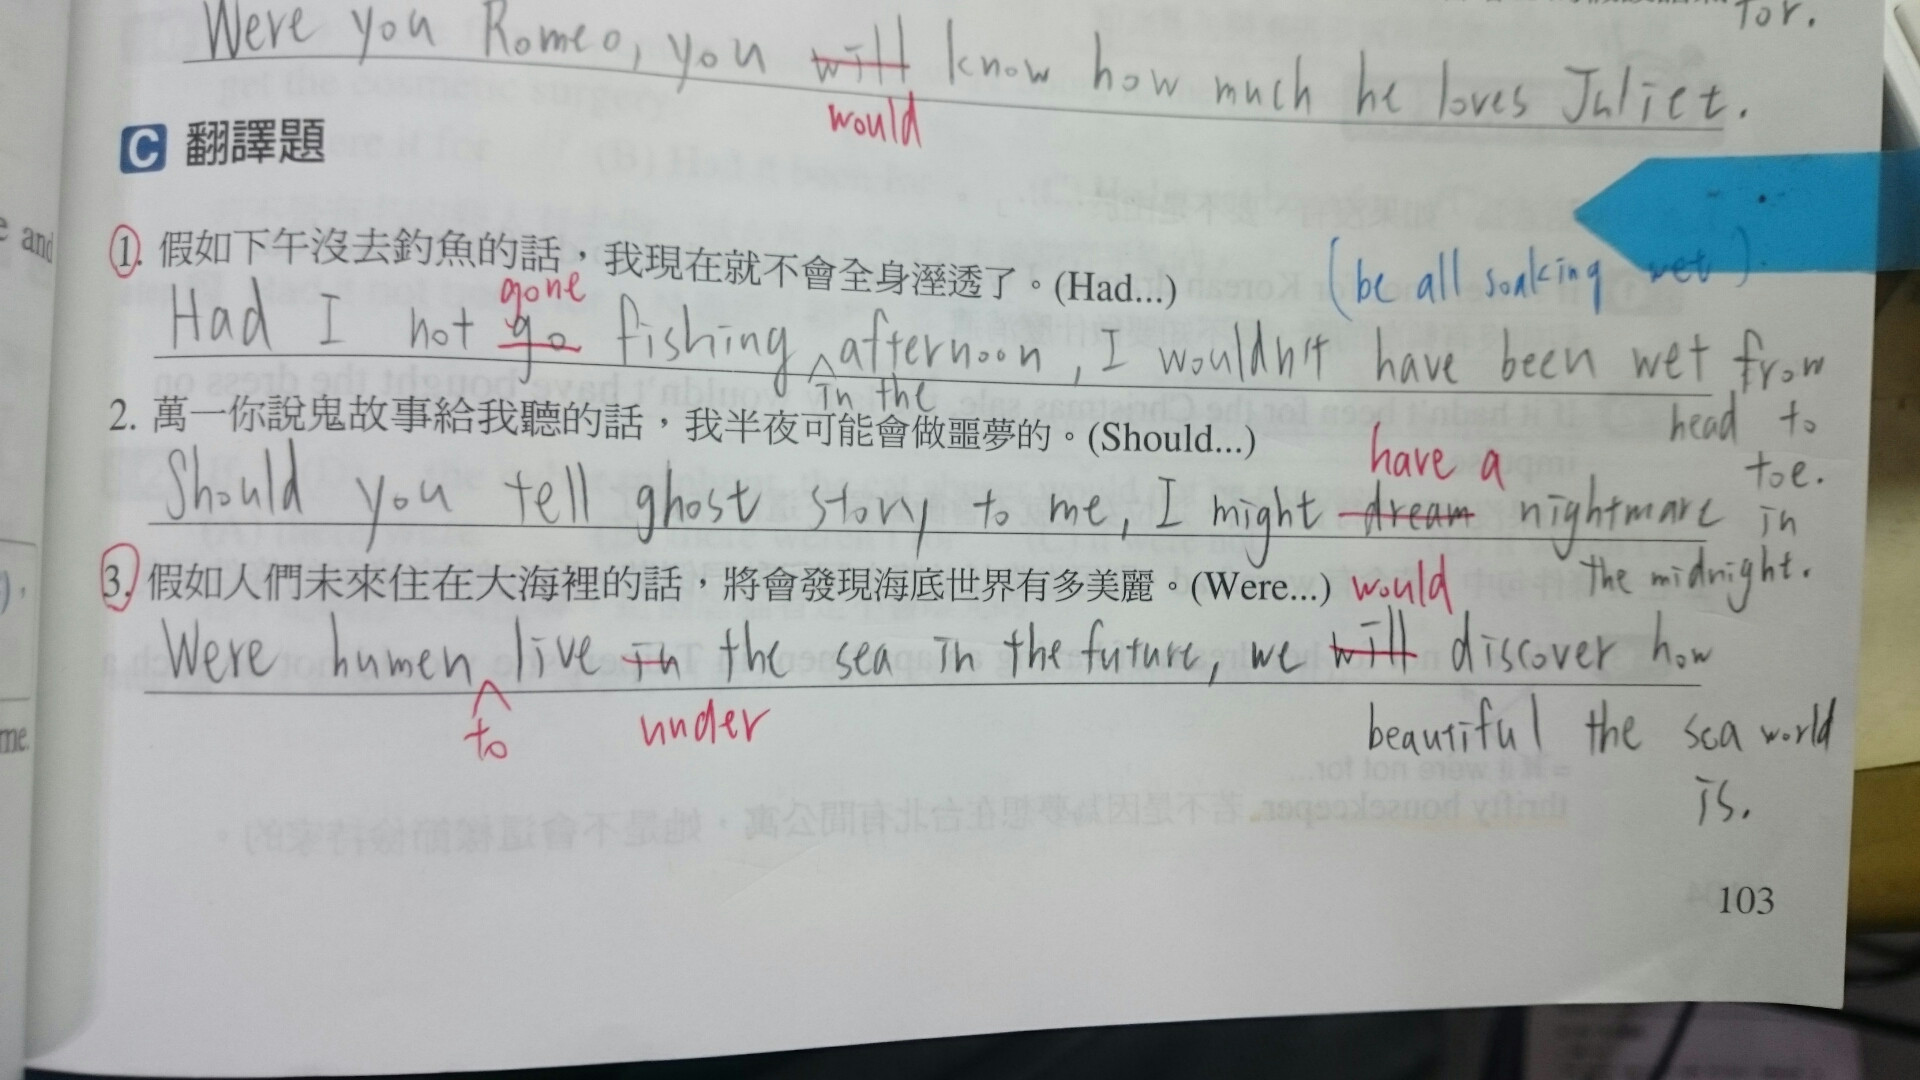 for.
Were you Romeo, you will know how much he loves Juliet.
would
C 翻譯題
1. 假如下午沒去釣魚的話，我現在就不會全身溼透了。(Had...) (be all soaking wet).
gone
Had I not go fishing afternoon, I wouldn't have been wet from
in the
head to
toe.
2. 萬一你說鬼故事給我聽的話，我半夜可能會做噩夢的。(Should...)
have a
Should you tell ghost story to me, I might dream nightmare in
the midnight.
3. 假如人們未來住在大海裡的話，將會發現海底世界有多美麗。(Were...) would
Were humen live in the sea in the future, we will discover how
to under
beautiful the sea world
is.
103
e and
me.